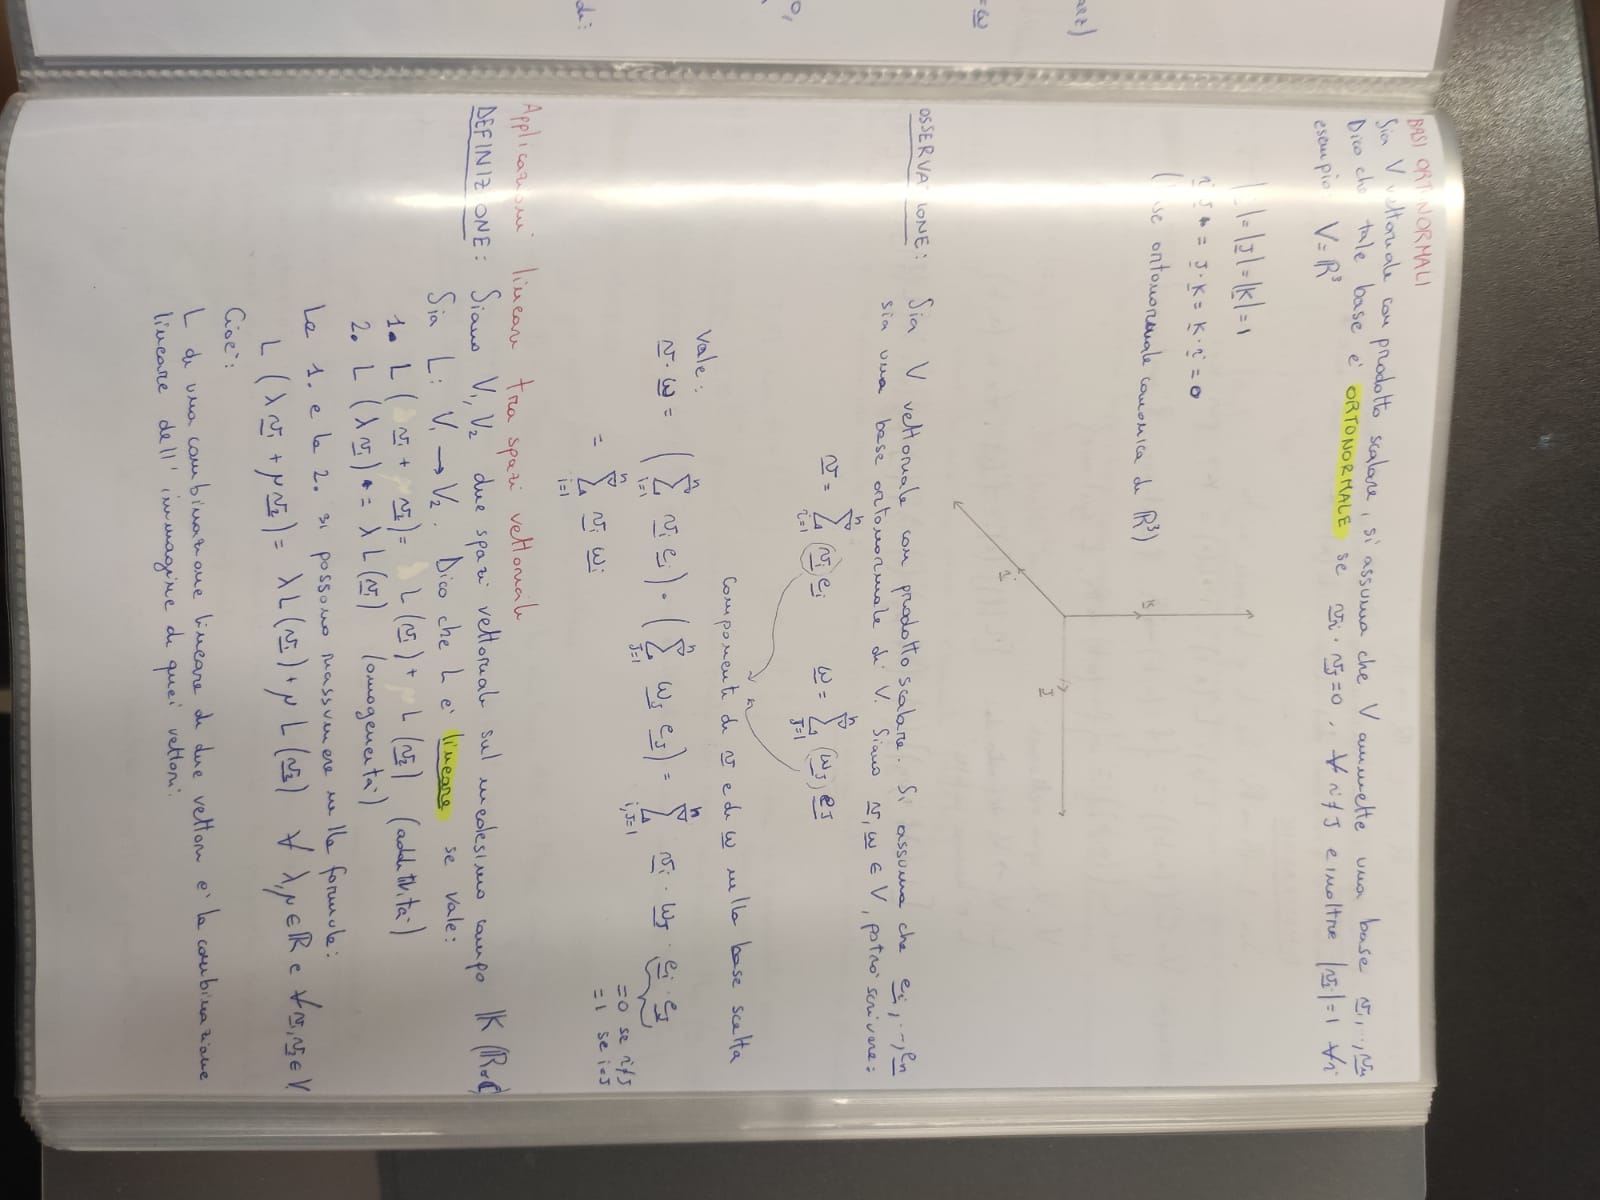 BASI ORTONORMALI
Sia V vettoriale con prodotto scalare, si assuma che V ammette una base v1,..,vn
Dico che tale base è ORTONORMALE se vi · vj = 0 , ∀ i≠J e inoltre |vi| = 1 ∀i
esempio: V = ℝ³
|i| = |J| = |K| = 1
i · J = J · K = K · i = 0
(base ortonormale canonica di ℝ³)
K
i
J
OSSERVAZIONE: Sia V vettoriale con prodotto scalare. Si assuma che ei,..,en
sia una base ortonormale di V. Siano v, w ∈ V, potrò scrivere:
v = ∑ⁿᵢ₌₁ (vi) ei w = ∑ⁿⱼ₌₁ (wJ) eJ
componenti di v e di w nella base scelta
Vale:
v · w = (∑ⁿᵢ₌₁ vi ei) · (∑ⁿⱼ₌₁ wJ eJ) = ∑ⁿᵢ,ⱼ₌₁ vi · wJ · ei · eJ
=0 se i≠J
=1 se i=J
= ∑ⁿᵢ₌₁ vi wi
Applicazioni lineari tra spazi vettoriali
DEFINIZIONE: Siano V1, V2 due spazi vettoriali sul medesimo campo 𝕂 (ℝ o ℂ)
Sia L: V1 → V2. Dico che L è lineare se vale:
1. L (v1 + v2) = L (v1) + L (v2) (additività)
2. L (λ v1) = λ L (v1) (omogeneità)
La 1. e la 2. si possono riassumere nella formula:
L (λ v1 + μ v2) = λ L (v1) + μ L (v2) ∀ λ, μ ∈ ℝ e ∀ v1, v2 ∈ V1
Cioè:
L di una combinazione lineare di due vettori è la combinazione
lineare dell'immagine di quei vettori.
arz)
= w
0,
di: